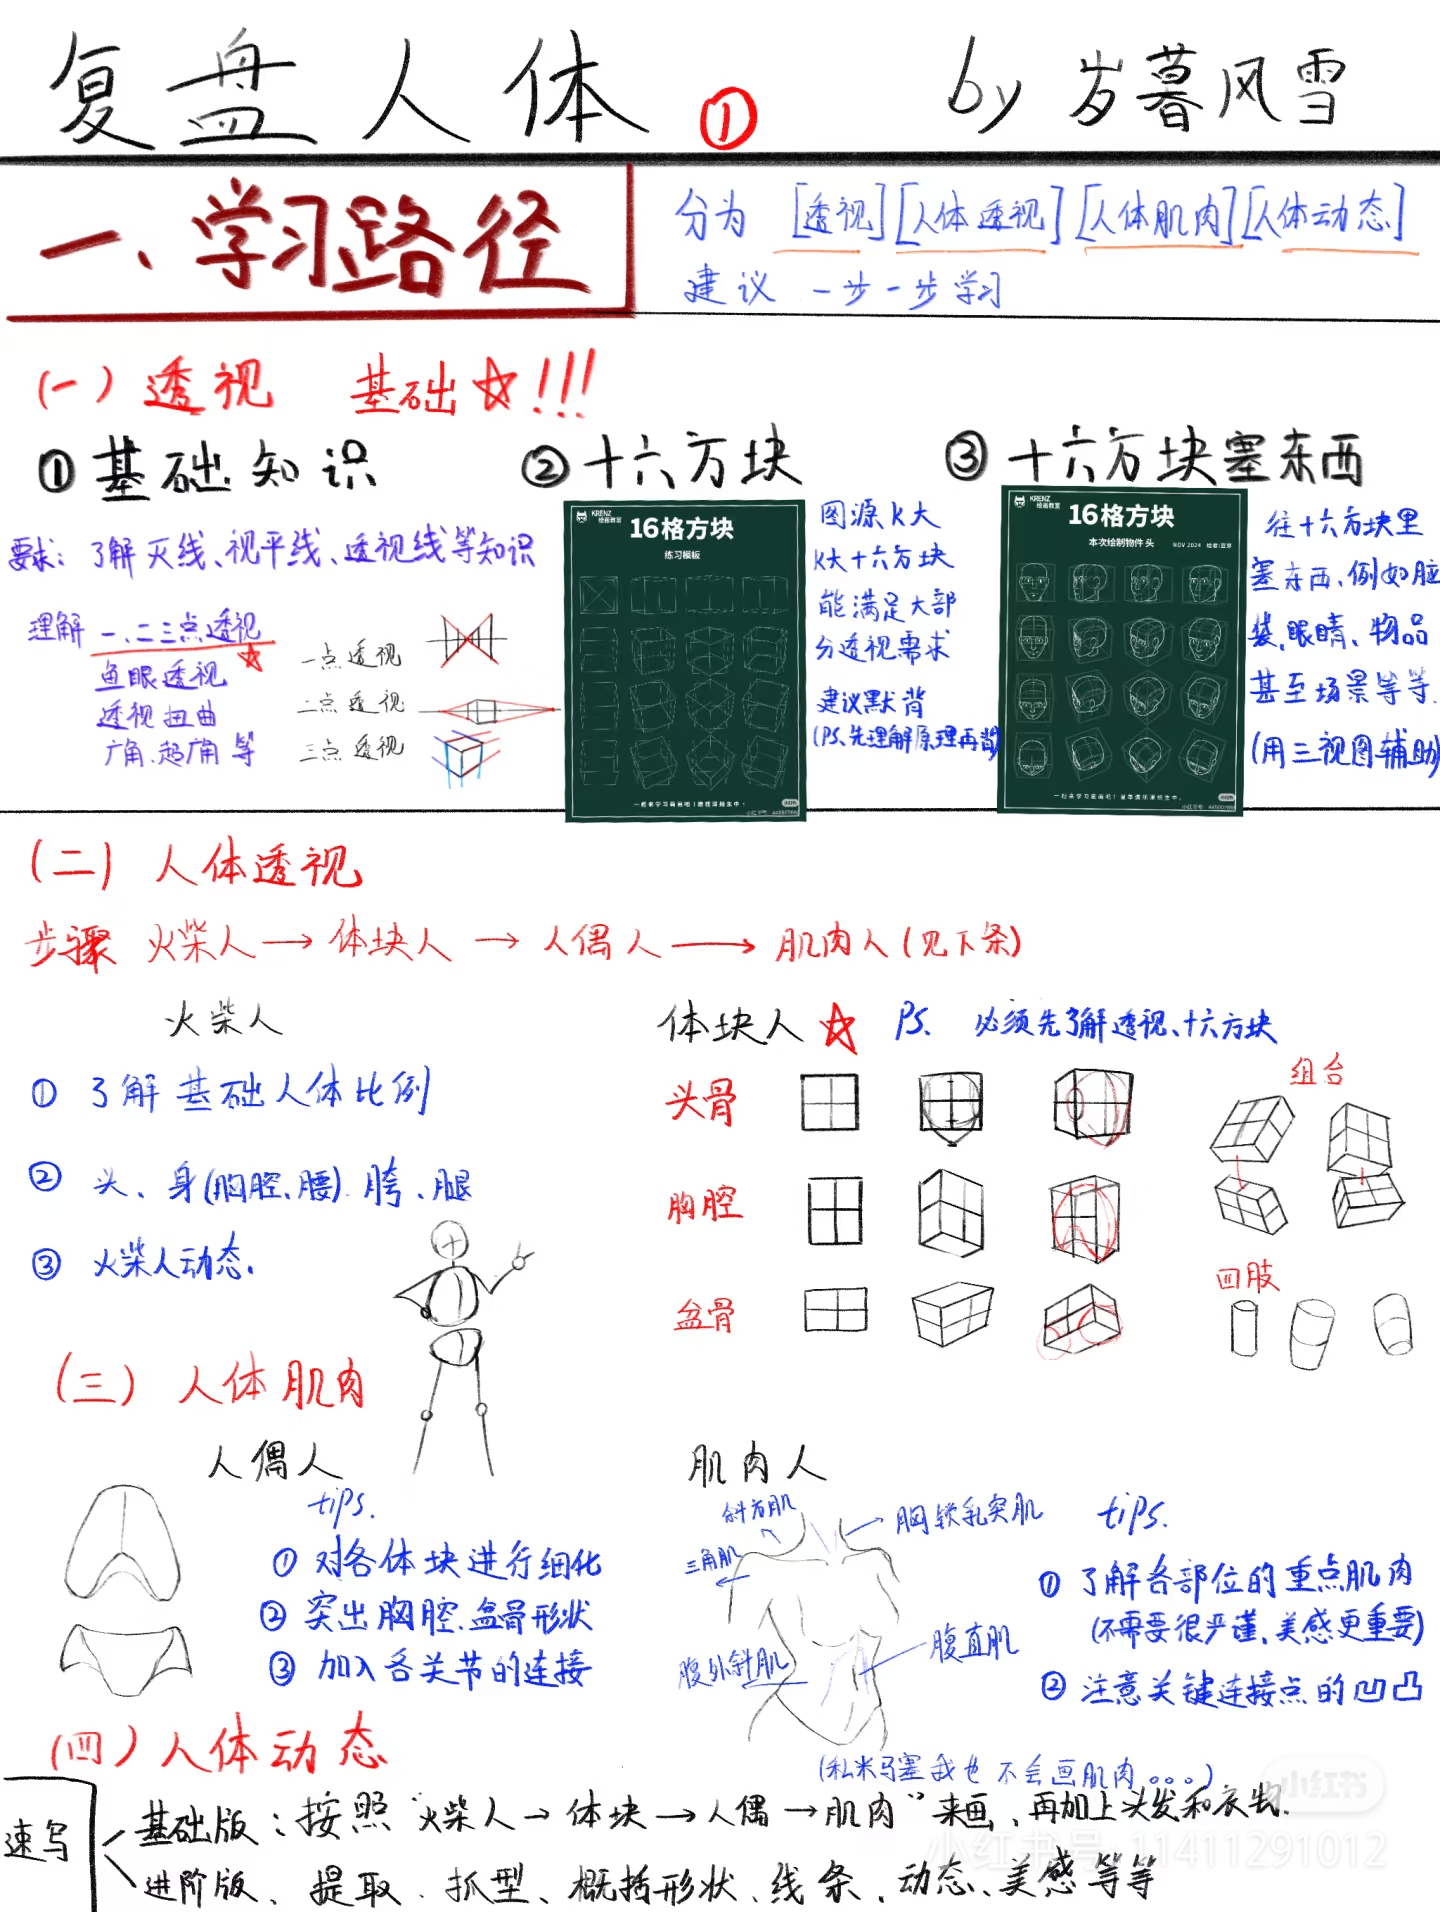 复盘人体 ① by 岁暮风雪
一、学习路径
分为 [透视][人体透视][人体肌肉][人体动态]
建议 一步一步学习
(一)透视 基础☆!!!
①基础知识
要求: 了解灭线、视平线、透视线等知识
理解 一、二三点透视
鱼眼透视
透视扭曲
广角、超广角 等
一点透视
二点透视
三点透视
②十六方块
KRENZ
绘画教室
16格方块
练习模板
小红书
图源K大
K大十六方块
能满足大部
分透视需求
建议默背
(PS、先理解原理再背)
③十六方块塞东西
KRENZ
绘画教室
16格方块
本次绘制物件 头
NOV 2024
小红书
往十六方块里
塞东西、例如脑
袋、眼睛、物品
甚至场景等等.
(用三视图辅助)
(二)人体透视
步骤 火柴人→体块人→人偶人→肌肉人(见下条)
火柴人
① 了解基础人体比例
② 头、身(胸腔、腰).胯、腿
③ 火柴人动态.
体块人☆ PS. 必须先了解透视、十六方块
头骨
胸腔
盆骨
组合
四肢
(三)人体肌肉
人偶人
tips.
①对各体块进行细化
②突出胸腔.盆骨形状
③加入各关节的连接
肌肉人
斜方肌
胸锁乳突肌
三角肌
腹外斜肌
腹直肌
tips.
①了解各部位的重点肌肉
(不需要很严谨、美感更重要)
②注意关键连接点的凹凸
(私米马塞我也不会画肌肉。。。)
(四)人体动态
速写
基础版:按照"火柴人→体块→人偶→肌肉"来画、再加上头发和衣物.
进阶版、提取.抓型、概括形状、线条、动态、美感等等
小红书
小红书号: 11411291012